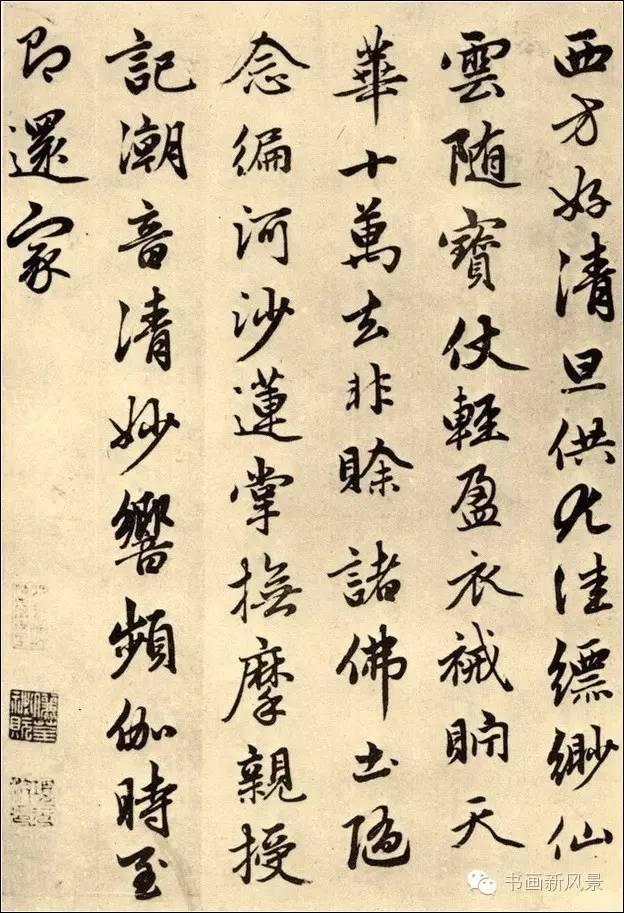 西方好清旦供尤佳縹緲仙
雲随寶仗輕盈衣祴貯天
華十萬去非賒諸佛土随
念徧河沙蓮掌撫摩親授
記潮音清妙響頻伽時至
即還家
书画新风景